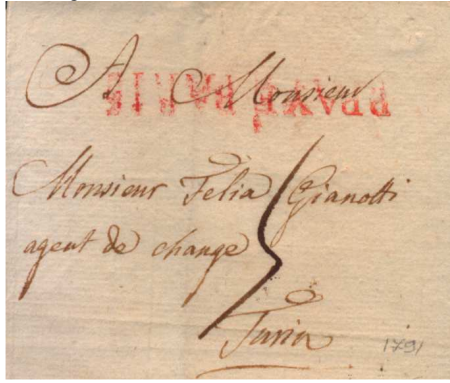 A Monsieur
P. PAYE. PARIS
Monsieur Felix Gianotti
agent de change
Turin
1791